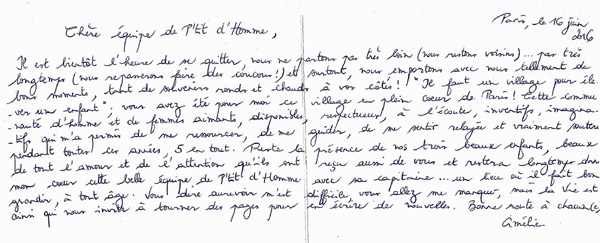 Paris, le 16 juin
2016
Chère équipe de P'tit d'Homme,
Il est bientôt l'heure de se quitter, nous ne partons pas très loin (nous restons voisins)... pas très
longtemps (nous repasserons faire des coucous!) et surtout, nous emportons avec nous tellement de
bons moments, tant de souvenirs ronds et chauds à vos côtés! "Il faut un village pour éle
-ver un enfant": vous avez été pour moi ce village en plein coeur de Paris! Cette commu
-nauté d'femme et de femmes aimantes, disponibles, respectueux, à l'écoute, inventifs, imagina
-tifs qui m'a permis de me ressourcer, de me guider, de me sentir relayée et vraiment soutenu
pendant toutes ces années, 5 en tout. Reste la présence de nos trois beaux enfants, beaux
de tout l'amour et de l'attention qu'ils ont reçu aussi de vous et restera longtemps dans
mon coeur cette belle équipe de P'tit d'Homme avec sa capitaine... un lieu où il fait bon
grandir, à tout âge. Vous dire aurevoir m'est difficile vous allez me manquer, mais la vie est
ainsi qui nous invite à tourner des pages pour en écrire de nouvelles. Bonne route à chacun(e),
Amélie